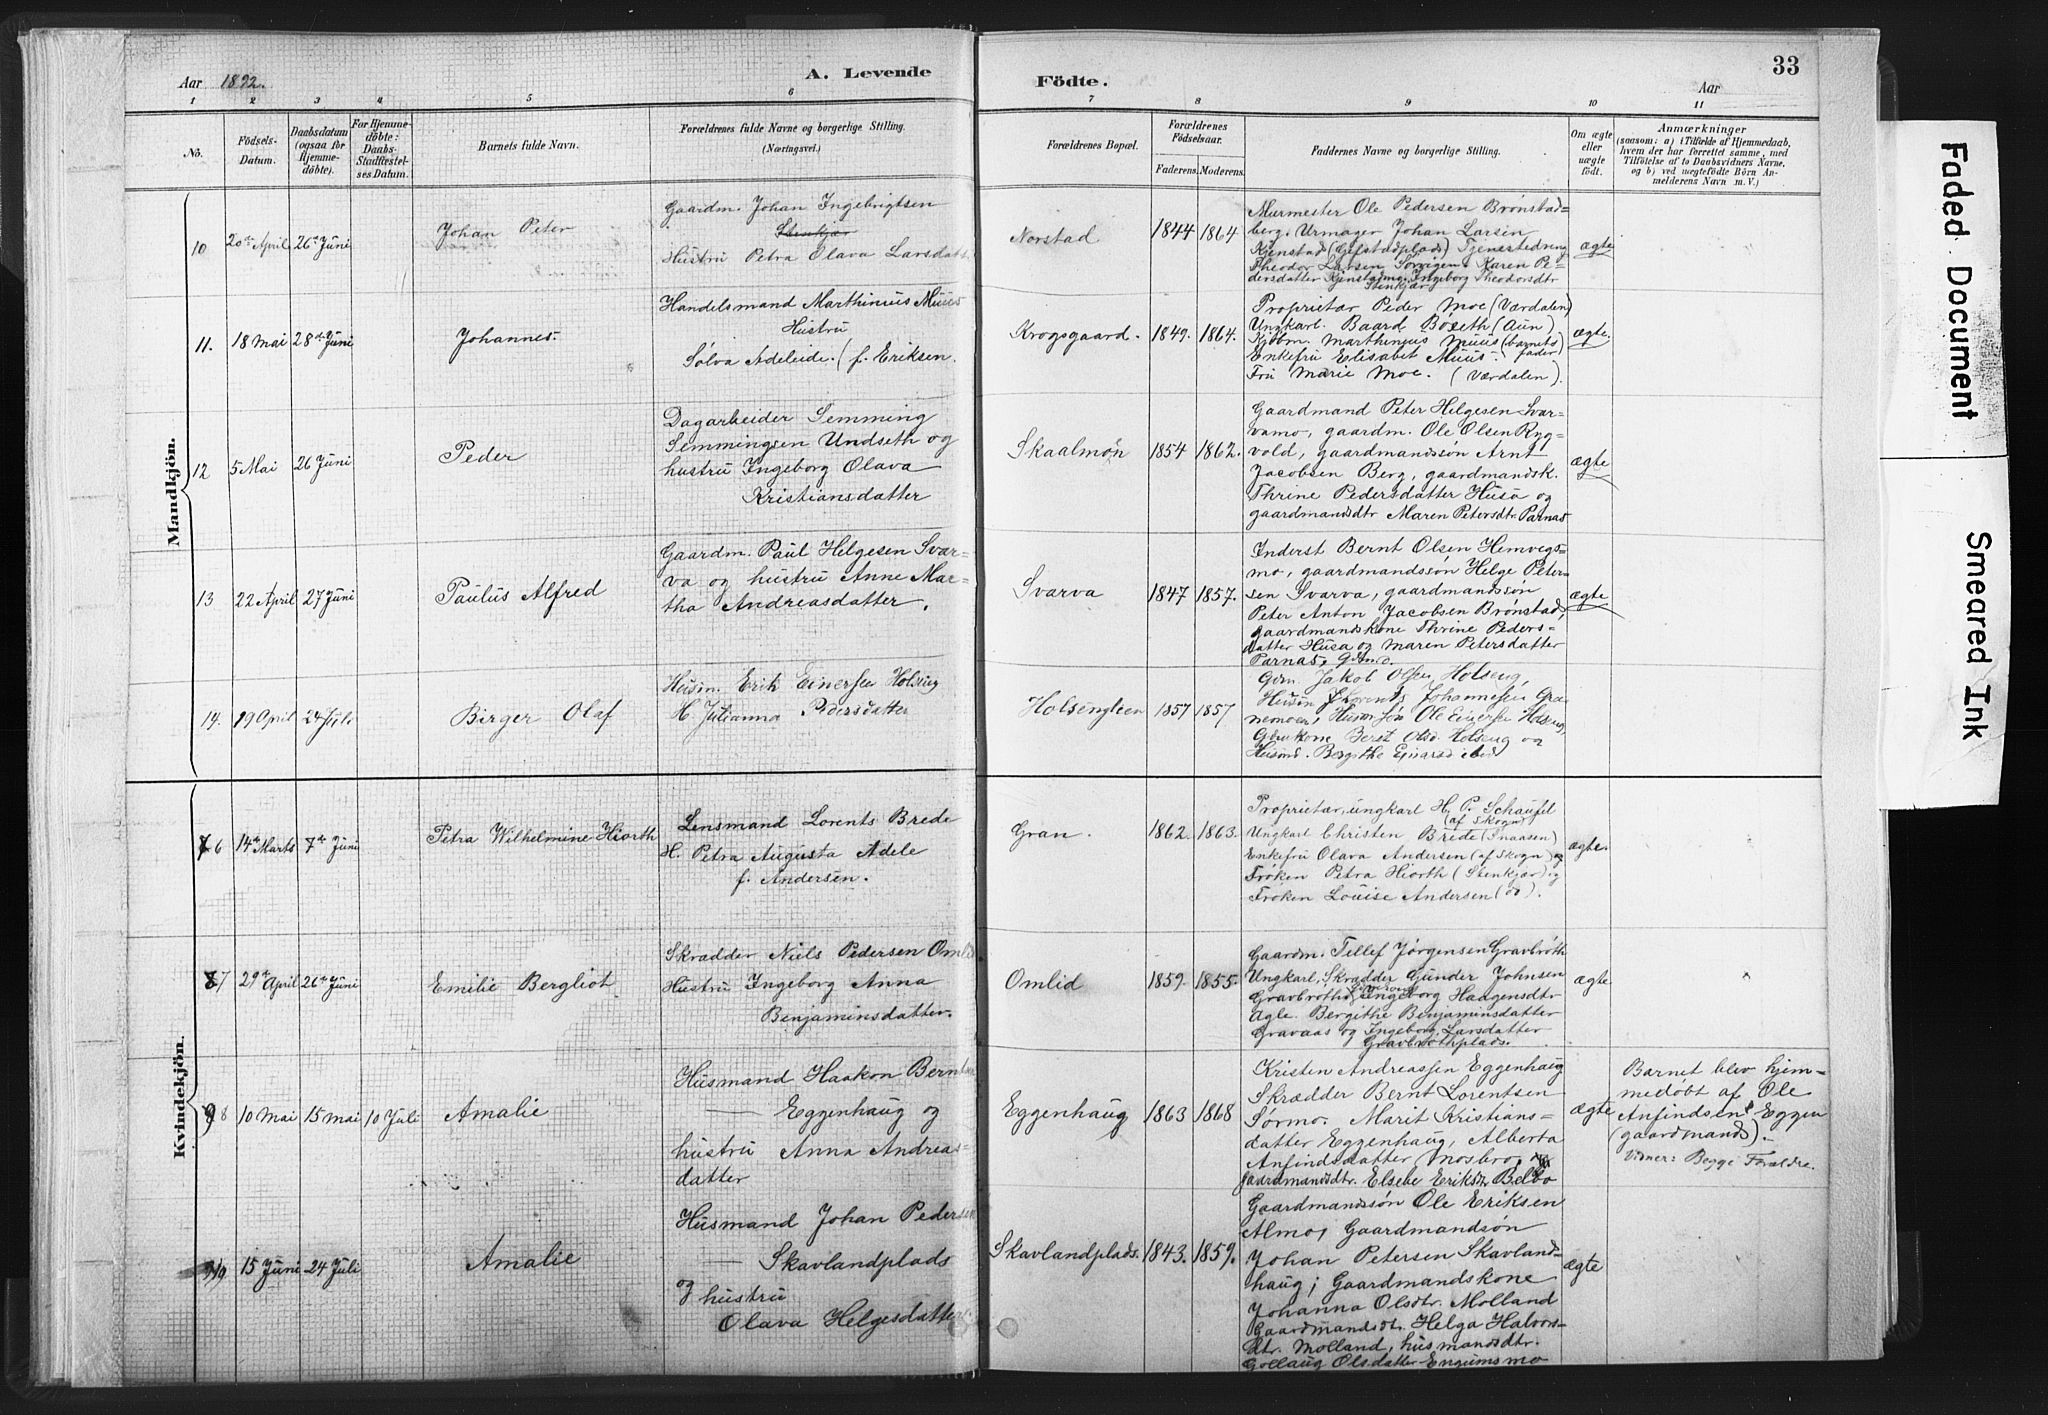 Aar 1892.
A. Levende
Födte.
Aar
33
1 2 3 4 5 6 7 8 9 10 11
No.
Födsels-Datum.
Daabsdatum (ogsaa for Hjemmedöbte).
For Hjemmedöbte: Daabs-Stadfæstelses Datum.
Barnets fulde Navn.
Forældrenes fulde Navne og borgerlige Stilling. (Næringsvei.)
Forældrenes Bopæl.
Forældrenes Födselsaar.
Faderens. Moderens.
Faddernes Navne og borgerlige Stilling.
Om ægte eller uægte födt.
Anmærkninger
(saasom: a) i Tilfælde af Hjemmedaab, hvem der har forrettet samme, med Tilföielse af to Daabsvidners Navne, og b) ved uægtefödte Börn Anmelderens Navn m. V.)
Mandkjön.
10
20de April
26de Juni
Johan Peter
Gaardm. Johan Ingebrigtsen
Stenkjær
Hustru Petra Olava Larsdatt.
Norstad
1844
1864
Murmester Ole Pedersen Brønstad-
berg. Urmager Johan Larsen
Kjenstad (Gjefstadplads) Tjenestedreng
Theodor Larsen Sørvigen. Karen Pe-
dersdatter Kjenstadmo. Ingeborg Theodorsdtr
Stenkjær
ægte
11.
18 Mai
28de Juni
Johannes.
Handelsmand Marthinius Muus
Hustru
Sølva Adeleide. (f. Eriksen.
Krogsgaard.
1849.
1864.
Proprietær Peder Moe (Værdalen)
Ungkarl. Baard Bøseth (Aun)
Kjøbm. Marthinius Muus (barnets fader)
Enkefru Elisabet Muus.
Fru Marie Moe. (Værdalen).
ægte.
12
5 Mai
26 Juni
Peder
Dagarbeider Semming
Semmingsen Undseth og
hustru Ingeborg Olava
Kristiansdatter
Skaalmøn
1854
1862.
Gaardmand Peter Helgesen Svar-
vamo, gaardm. Ole Olsen Ryg-
vold, gaardmandssøn Arnt
Jacobsen Berg, gaardmandsk.
Thrine Pedersdatter Husa og
gaardmandsdtr Maren Petersdtr. Parnas
ægte
13
22 April
27 Juni
Paulus Alfred
Gaardm. Paul Helgesen Svar-
va og hustru Anne Mar-
tha Andreasdatter.
Svarva
1847
1857.
Inderst Bernt Olsen Hemvegs-
mo, gaardmandssøn Helge Peter-
sen Svarva, gaardmandssøn
Peter Anton Jacobsen Brønstad,
gaardmandskone Thrine Peders-
datter Husa og Maren Petersdatter
Parnas,
ægte
14.
19 April
24 Juli
Birger Olaf
Husm. Erik Einersen Holseng
H Julianna Pedersdatter
Holsengteen
1857
1857
Gdm. Jakob Olsen Holseng,
Husm Lorents Johannesen Gra-
nemoen, Husm Søn Ole Einersen Holseng,
Gdm kone Beret Olsd. Holseng og
Husmd. Bergithe Einarsd ibid
Kvindekjön.
6
14de Marts
7de Juni
Petra Wilhelmine Hiorth
Lensmand Lorents Brede
H. Petra Augusta Adele
f. Andersen.
Gran.
1862.
1863.
Proprietær, ungkarl H. P. Schaufel
(af Skogn)
Ungkarl Christen Brede (Snaasen)
Enkefru Olava Andersen (af Skogn) og
Frøken Petra Hiorth (Stenkjær) og
Frøken Louise Andersen (do).
ægte.
7
29de April
26de Juni
Emilie Bergliot
Skrædder Niels Pedersen Omlid
Hustru Ingeborg Anna
Benjaminsdatter.
Omlid
1859.
1855.
Gaardm. Tellef Jørgensen Gravbrøth
Ungkarl, Skrædder Gunder Johnsen
Gravbrøth. Ingeborg Haagensdtr
Agle. Bergithe Benjaminsdatter
Gravaas og Ingeborg Larsdatter
Gravbrøthplads.
ægte
8
10 Mai
15 Mai
10 Juli
Amalie
Husmand Haakon Bernt
— Eggenhaug og
hustru Anna Andreas-
datter
Eggenhaug
1863
1868
Kristen Andreassen Eggenhaug
Skrædder Bernt Lorentsen
Sørmo. Marit Kristians-
datter Eggenhaug, Alberta
Anfindsdatter Mosbro,
gaardmandsdtr. Elsebe Eriksdtr Belbo
ægte
Barnet blev hjem-
medøbt af Ole
Anfindsen Eggen
(gaardmand).
Vidner: Begge Forældre.
9
15 Juni
24 Juli
Amalie
Husmand Johan Pedersen
— Skavlandplads
og hustru
Olava Helgesdatter
Skavlandplads.
1843.
1859.
Gaardmandssøn Ole Eriksen
Almo, Gaardmandsøn
Johan Petersen Skavland-
haug; Gaardmandskone
Johanna Olsdtr. Molland
Gaardmandsdtr. Helga Halvors-
dtr. Molland, husmandsdtr.
Gollaug Olsdatter Engumsmo
ægte
Faded Document
Smeared Ink